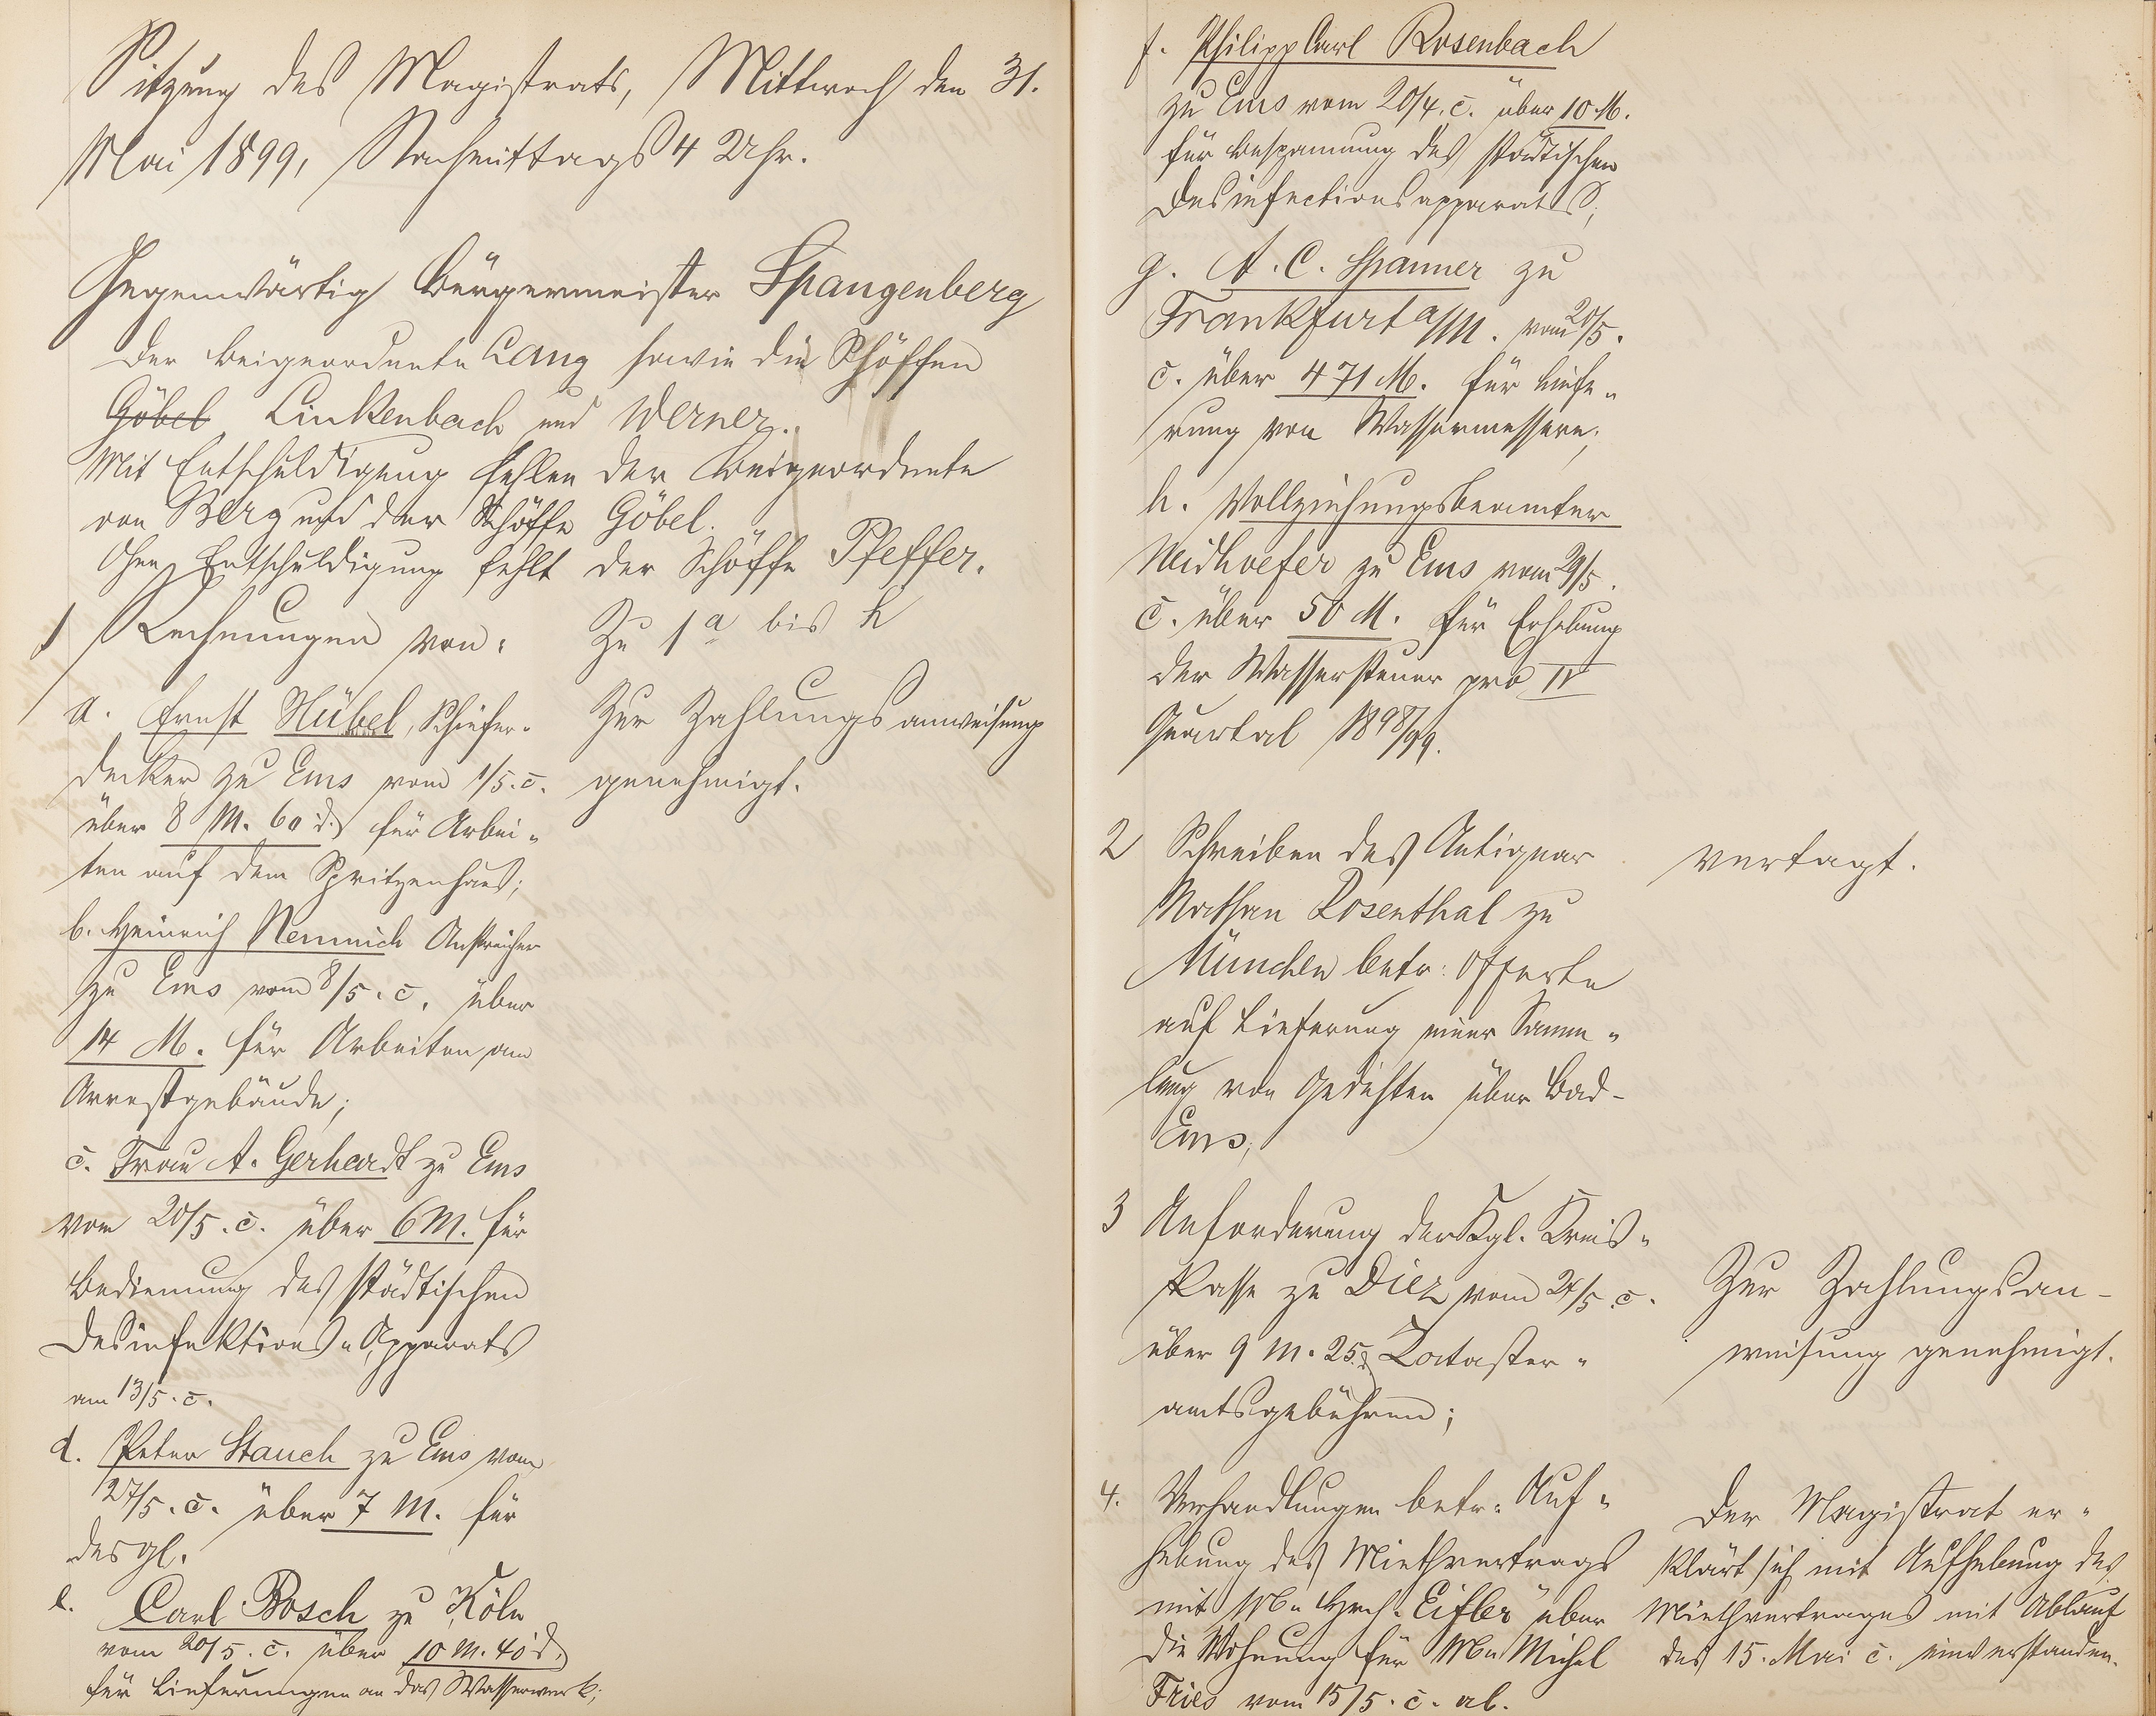 Sitzung des Magistrats, Mittwoch den 31.
Mai 1899, Nachmittags 4 Uhr.
Gegenwärtig Bürgermeister Spangenberg
der Beigeordnete Lang sowie die Schöffen
Göbel, Linkenbach und Werner.
Mit Entschuldigung fehlen der Beigeordnete
von Berg und der Schöffe Göbel.
Ohne Entschuldigung fehlt der Schöffe Pfeffer.
1 Rechnungen von:
a. Ernst Hübel, Schiefer-
decker zu Ems vom 1/5. c.
über 8 M. 60 d. für Arbei-
ten auf dem Spritzenhaus;
b. Heinrich Nemnich Anstreicher
zu Ems vom 8/5. c. über
14 M. für Arbeiten am
Arrestgebäude;
c. Frau A. Gerhardt zu Ems
vom 20/5. c. über 6 M. für
Bedienung des städtischen
Desinfektions-Apparats
am 13/5. c.
d. Peter Stauch zu Ems vom
27/5. c. über 7 M. für
desgl.
e. Carl Bosch zu Köln
vom 20/5. c. über 10 M. 40 d.
für Lieferungen an das Wasserwerk;
Zu 1 a bis h
Zur Zahlungsanweisung
genehmigt.
f. Philipp Carl Rosenbach
zu Ems vom 20/4. c. über 10 M.
für Bespannung des städtischen
Desinfectionsapparats;
g. A. C. Spanner zu
Frankfurt a/M. vom 20/5.
c. über 471 M. für Liefe-
rung von Wassermessern;
h. Vollziehungsbeamter
Neidhoefer zu Ems vom 29/5.
c. über 50 M. für Erhebung
der Wassersteuer pro IV
Quartal 1898/99.
2 Schreiben des Antiquar
Nathan Rosenthal zu
München betr: Offerte
auf Lieferung einer Samm-
lung von Gedichten über Bad-
Ems;
vertagt.
3 Anforderung der Kgl. Kreis-
kasse zu Diez vom 24/5. c.
über 9 M. 25 d. Kataster-
amtsgebühren;
Zur Zahlungsan-
weisung genehmigt.
4. Verhandlungen betr: Auf-
hebung des Miethvertrags
mit Hrch. Eifler über
die Wohnung für Michel
Fries vom 15/5. c. ab.
Der Magistrat er-
klärt sich mit Aufhebung des
Miethvertrages mit Ablauf
des 15. Mai c. einverstanden.